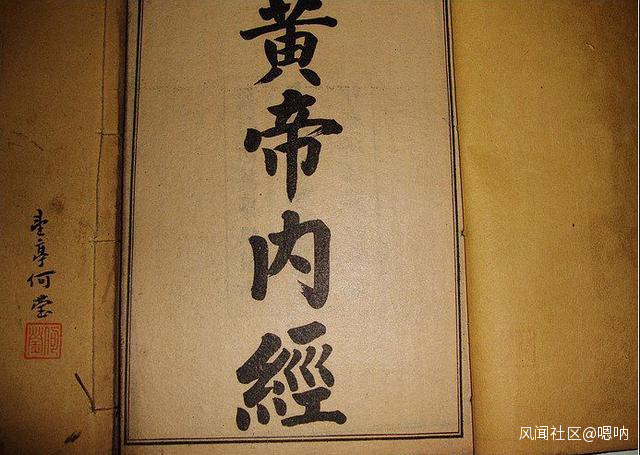 黃帝內經
亭何瑩
风闻社区@嗯呐